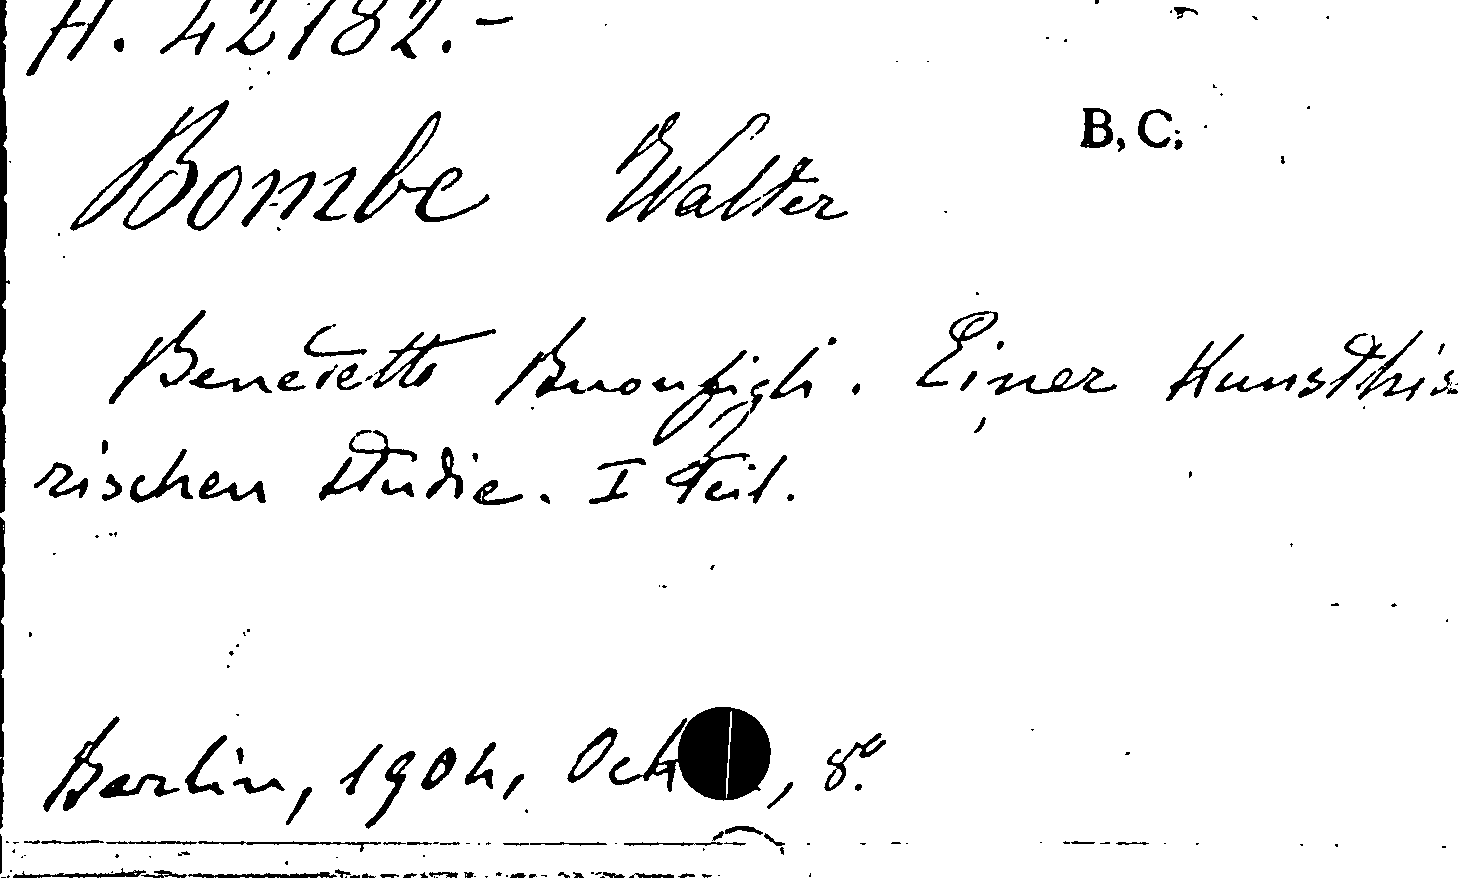 A. 42182.-
B, C;
Bombe Walter
Benedetto Buonfigli. Einer Kunsthis
rischen Studie. I Teil.
Berlin, 1904, 8º.